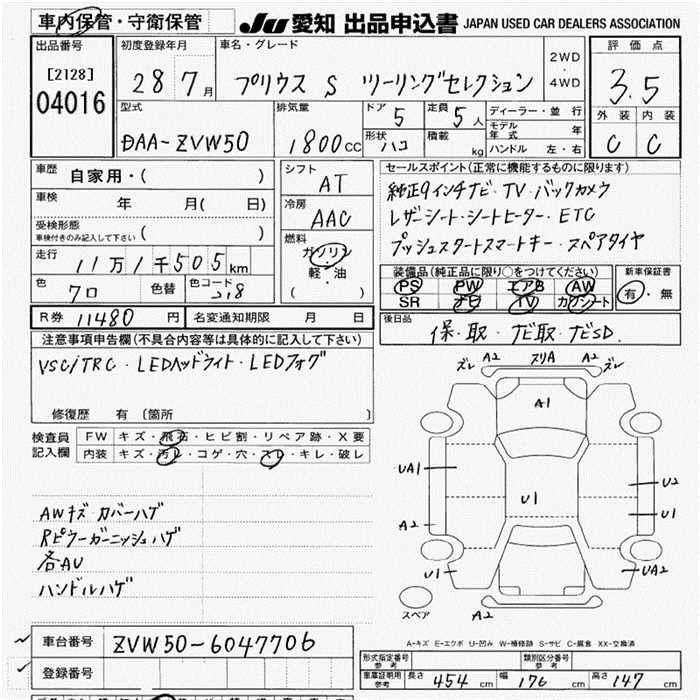 車内保管・守衛保管
JU 愛知 出品申込書 JAPAN USED CAR DEALERS ASSOCIATION
出品番号
[2128]
04016
初度登録年月
28 7月
車名・グレード
プリウス S ツーリングセレクション
2WD
・
4WD
評価点
3.5
外装 内装
C C
型式
DAA-ZVW50
排気量
1800CC
ドア 5
定員 5人
形状 ハコ
積載 kg
ディーラー・並行
モデル年式 年
ハンドル 左・右
車歴 自家用・( )
車検 年 月( 日)
受検形態
車検付きのみ記入して下さい ( )
走行 11万1千505km
色 7ロ 色替 色コード 218
シフト
AT
冷房
AAC
燃料
ガソリン
・
軽・油
( )
セールスポイント(正常に機能するものに限ります)
純正9インチナビ・TV・バックカメラ
レザーシート・シートヒーター・ETC
プッシュスタートスマートキー・スペアタイヤ
装備品(純正品に限り○をつけてください)
PS PW エアB AW
SR ナビ TV カワシート
新車保証書
有・無
R券 11480 円 名変通知期限 月 日
後日品
保・取・ナビ取・ナビSD.
注意事項申告欄(不具合内容等は具体的に記入して下さい)
VSC/TRC・LEDヘッドライト・LEDフォグ
修復歴 有 〔箇所 〕
検査員記入欄
FW キズ・飛石・ヒビ割・リペア跡・X要
内装 キズ・汚レ・コゲ・穴・スレ・キレ・破レ
AWキズ カバーハゲ
Rピラーガーニッシュハゲ
各AU
ハンドルハゲ
ズレ A2 スリA A2 ズレ
A1
UA1 U2
U1 U1
A2
U1 UA2
スペア A2
A-キズ E-エクボ U-凹み W-補修跡 S-サビ C-腐食 XX-交換済
車台番号 ZVW50-6047706
登録番号
形式指定番号 参考 類別区分番号 参考
車庫証明用 参考 長さ 454cm 幅 176cm 高さ 147cm